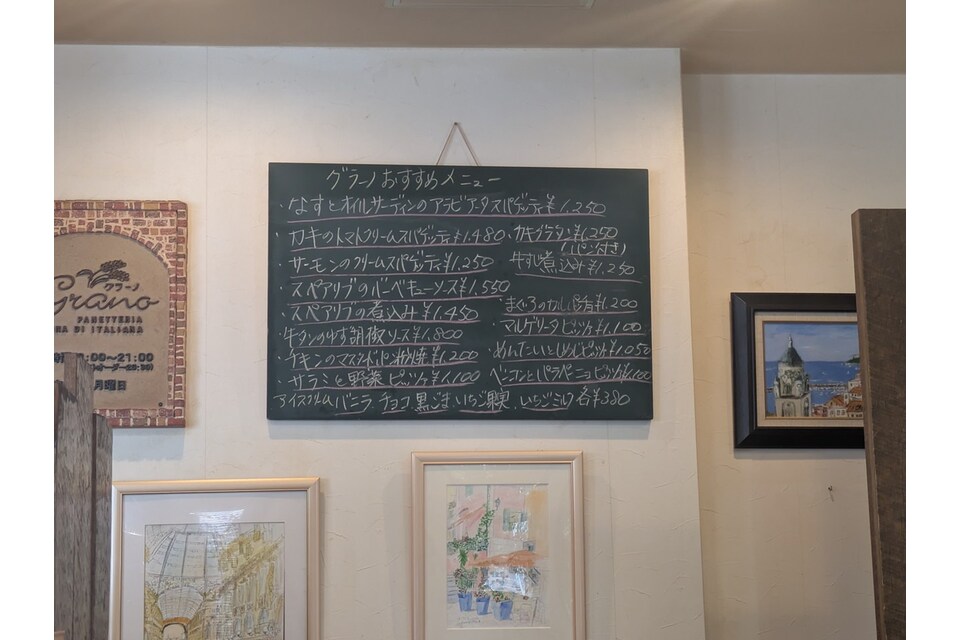 グラーノおすすめメニュー
・なすとオイルサーディンのアラビアータスパゲッティ¥1,250
・カキのトマトクリームスパゲッティ¥1,480
・サーモンのクリームスパゲッティ¥1,250
・スペアリブのバーベキューソース¥1,550
・スペアリブの煮込み¥1,450
・牛タンのゆず胡椒ソース¥1,800
・チキンのマスタードパン粉焼¥1,200
・サラミと野菜ピッツァ¥1,100
・カキグラタン¥1,250
(パン付き)
牛すじ煮込み¥1,250
・まぐろのカルパッチョ¥1,200
・マルゲリータピッツァ¥1,100
・めんたいとしめじピッツァ¥1,050
・ベーコンとハラペーニョピッツァ¥1,100
アイスクリームバニラ、チョコ黒ごまいちご果実、いちごミルク各¥380
グラーノ
Grano
PANETTERIA
NA DI ITALIANA
:00〜21:00
月曜日